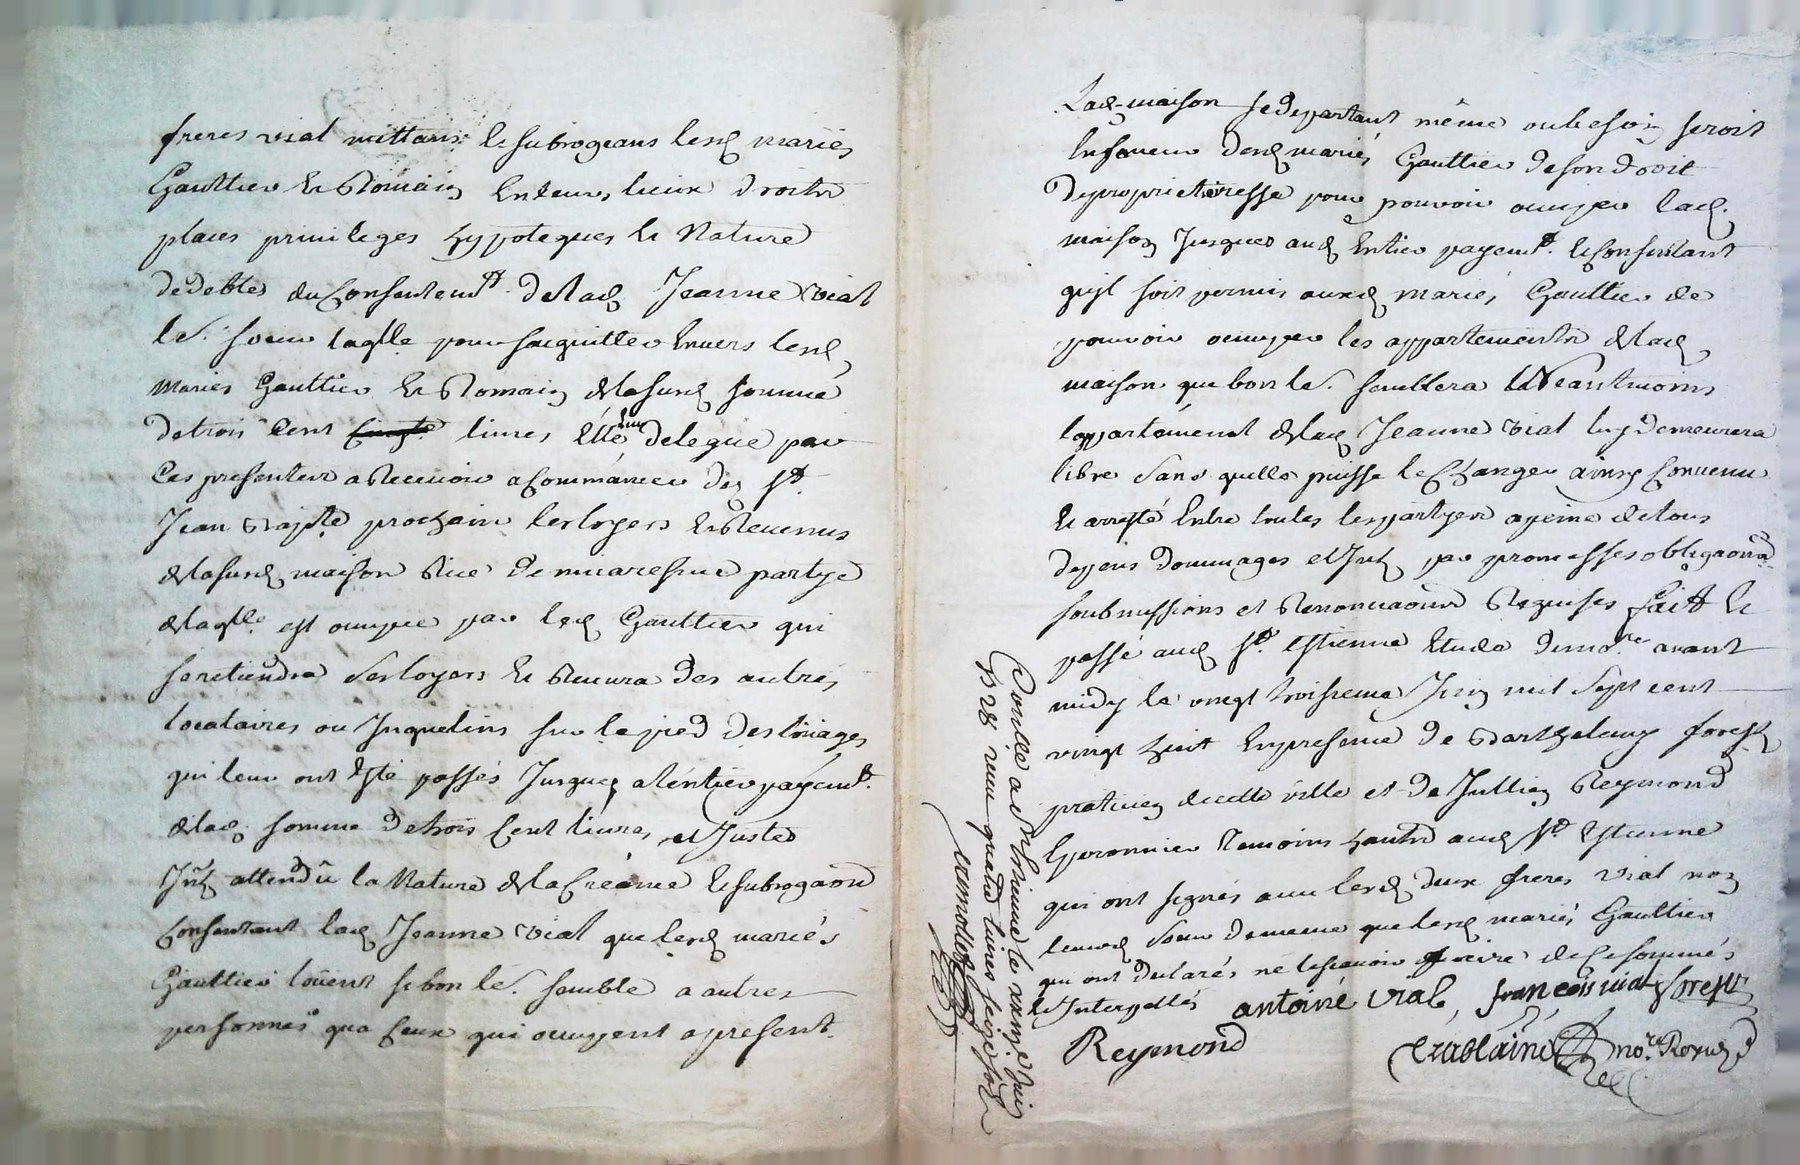 freres vial mettans & subrogeans lesd mariés
Gaultier & Romain en leurs lieux droits
places privileges hypoteques & Nature
de debtes du consentemt de lad Jeanne vial
le. soeur laqlle pour saquitter envers lesd
mariés Gaultier & Romain de la susd somme
de trois cent livres Elle leur delegue par
ces presentes a Recevoir a commancer de St.
Jean Bapte prochain les loyers & Revenus
de la susd maison Rue partye
de laqlle est ocupee par led Gaultier qui
se retiendra ses loyers & Recevra des autres
locataires ou Inquelins sur le pied des loüages
qui leur ont esté passés Jusques a lentier payemt.
de lad. somme de trois cent livres et Justes
Jnts attendû la Nature de la créance & subrogaon
consentant lad Jeanne vial que lesd mariés
Gaultier loüent si bon le. semble a autres
personnes qua ceux qui ocupent a present.
Lad. maison se departant même ou besoin seroit
en faveur desd mariés Gaultier de son droit
de proprietéresse pour pouvoir ocuper lad.
maison Jusques aud Entier payemt. & consentant
quil soit permis auxd mariés Gaultier de
pouvoir ocuper les appartements de lad
maison que bon le. semblera Neantmoins
lappartément de lad Jeanne vial luy demeurera
libre sans quelle puisse le changer ainsy convenu
& arresté Entre toutes les partyes a peine de tous
depens dommages et Jnts par promesses obligaons
soubmissions et Renonciaons Requises fait &
passé aud St. Estienne Etude du no.re avant
midy le vingt troisieme Juin mil sept cent
vingt huit En presence de Barthelemy forest
praticien de cette ville et de Jullien Reymond
Eperonnier Temoins hants aud St. Estienne
qui ont signés avec lesd deux freres vial non
leurd soeur de meme que lesd mariés Gaultier
qui ont declarés ne le scavoir faire de ce sommés
& Interpellés antoine vial françois vial forest
Reymond no.re Royal
Controllé a St Etienne le vingt Juin
1728 receu quatre livres seize sols